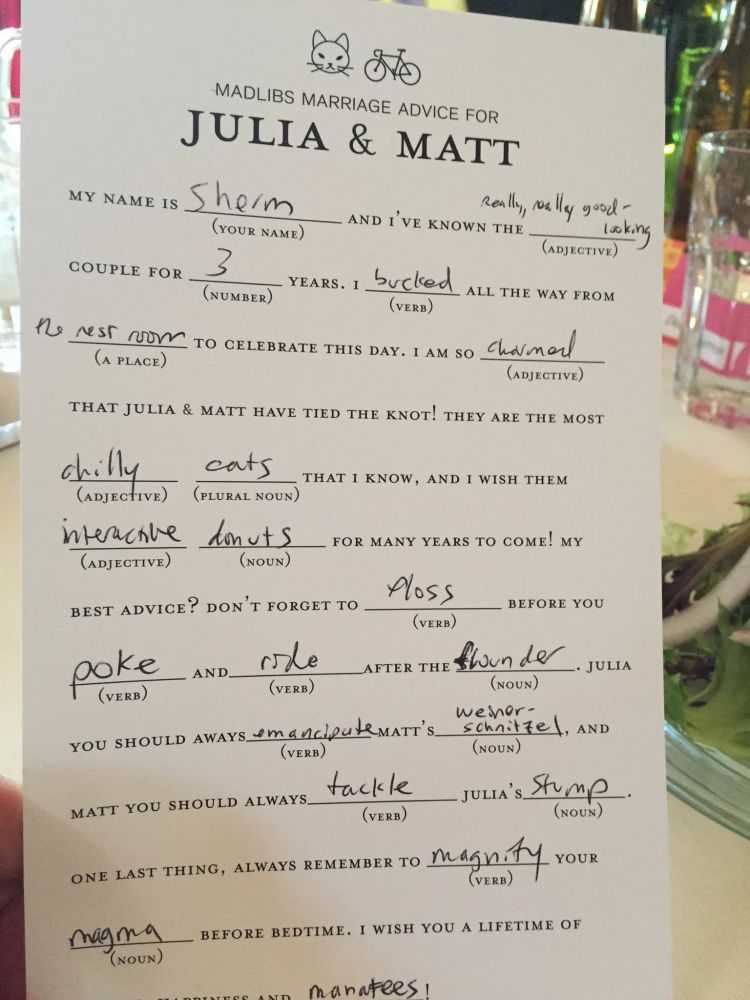 MADLIBS MARRIAGE ADVICE FOR
JULIA & MATT
MY NAME IS Sherm AND I'VE KNOWN THE Really, really good-looking
(YOUR NAME) (ADJECTIVE)
COUPLE FOR 3 YEARS. I bucked ALL THE WAY FROM
(NUMBER) (VERB)
the rest room TO CELEBRATE THIS DAY. I AM SO charmed
(A PLACE) (ADJECTIVE)
THAT JULIA & MATT HAVE TIED THE KNOT! THEY ARE THE MOST
chilly cats THAT I KNOW, AND I WISH THEM
(ADJECTIVE) (PLURAL NOUN)
interactive donuts FOR MANY YEARS TO COME! MY
(ADJECTIVE) (NOUN)
BEST ADVICE? DON'T FORGET TO floss BEFORE YOU
(VERB)
poke AND ride AFTER THE flounder. JULIA
(VERB) (VERB) (NOUN)
YOU SHOULD AWAYS emancipate MATT'S weiner-schnitzel, AND
(VERB) (NOUN)
MATT YOU SHOULD ALWAYS tackle JULIA'S stump.
(VERB) (NOUN)
ONE LAST THING, ALWAYS REMEMBER TO magnify YOUR
(VERB)
magma BEFORE BEDTIME. I WISH YOU A LIFETIME OF
(NOUN)
HAPPINESS AND manatees!